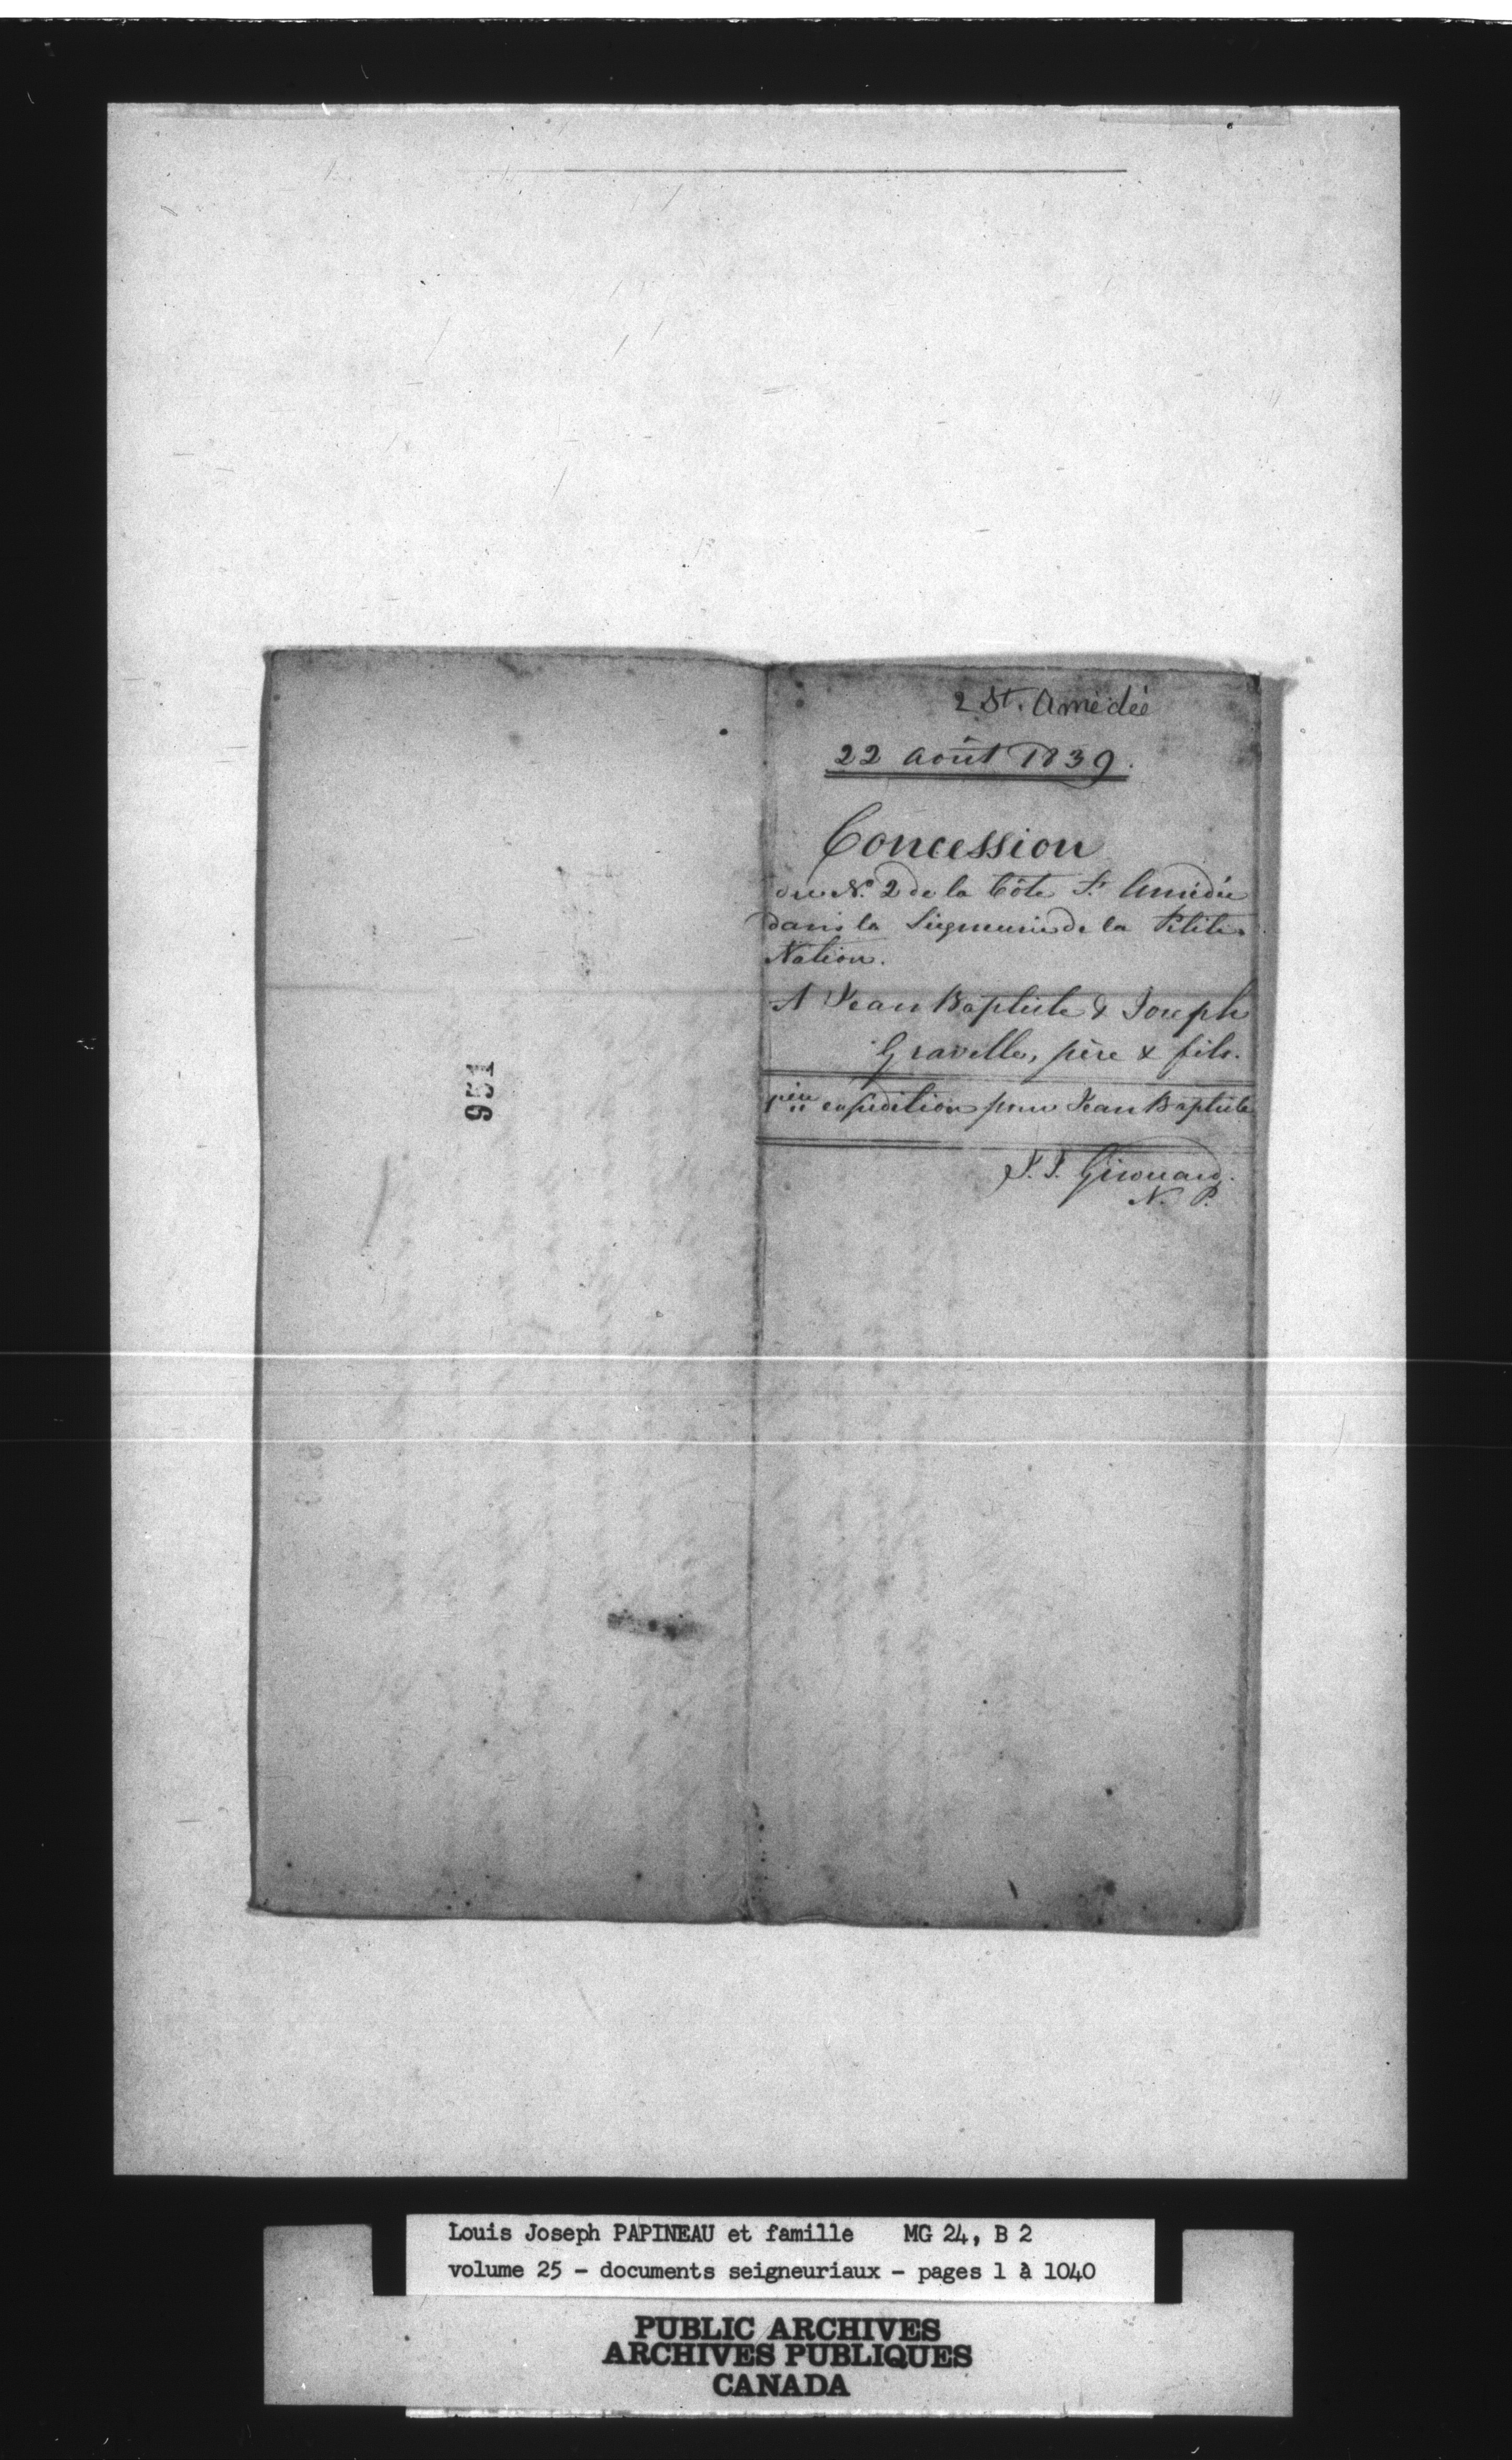 2 St. Amédée
22 août 1839.
Concession
du No. 2 de la Côte St. Amédée
dans la Seigneurie de la Petite
Nation.
A Jean Baptiste & Joseph
Gravelle, père & fils.
1ière expédition pour Jean Baptiste
J. J. Girouard.
N. P.
951
Louis Joseph PAPINEAU et famille MG 24, B 2
volume 25 - documents seigneuriaux - pages 1 à 1040
PUBLIC ARCHIVES
ARCHIVES PUBLIQUES
CANADA